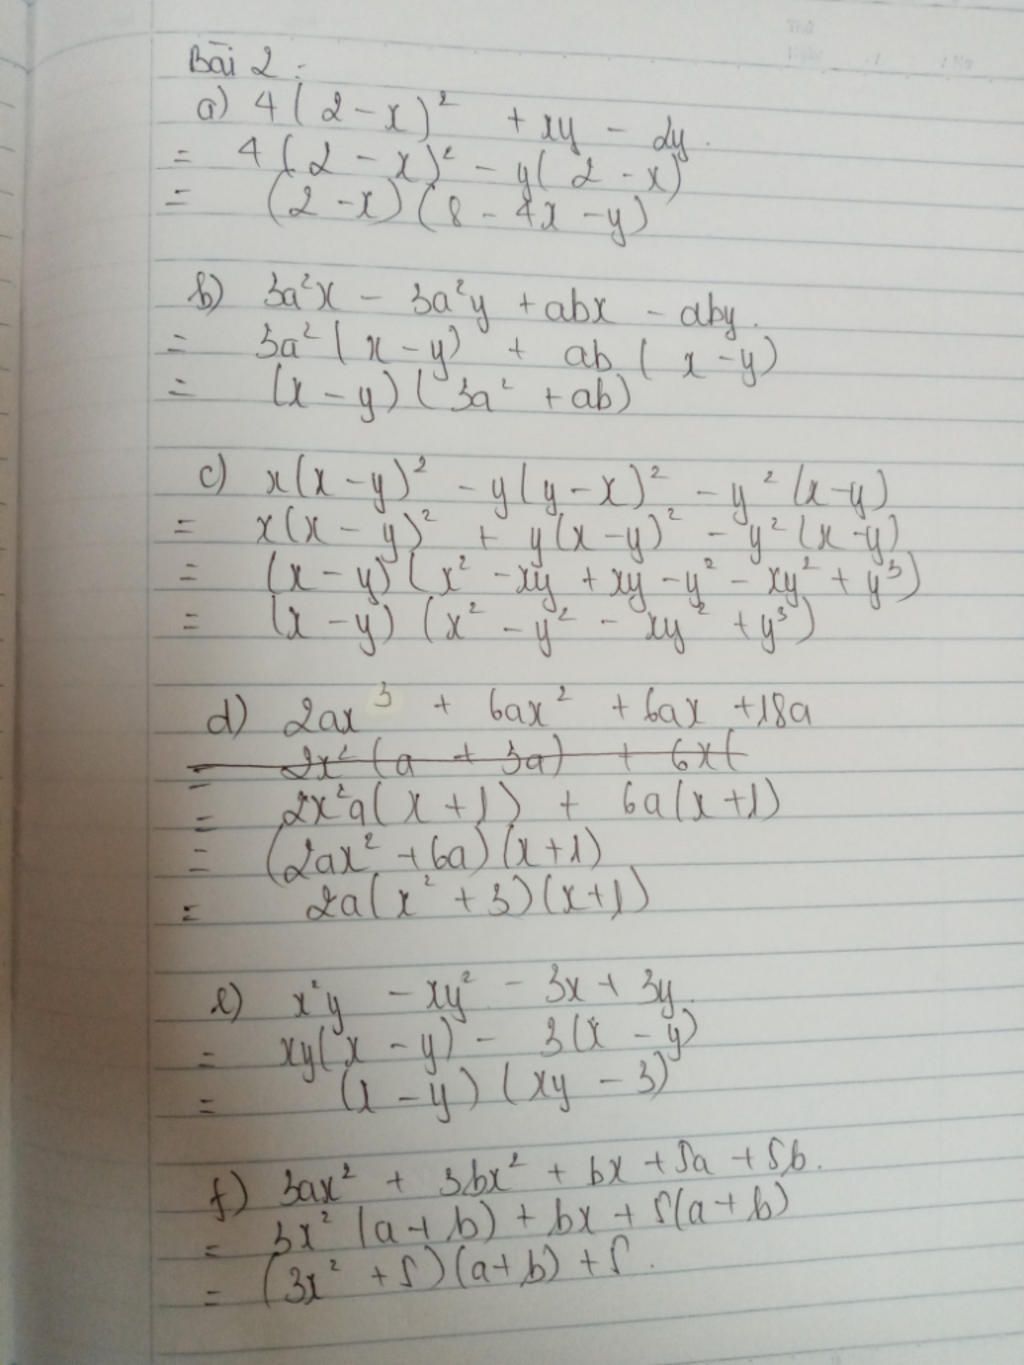 Bài 2:
a) 4(2-x)² + xy - 2y.
= 4(2-x)² - y(2-x)
= (2-x)(8-4x-y)
b) 3a²x - 3a²y + abx - aby.
= 3a²(x-y) + ab(x-y)
= (x-y)(3a² + ab)
c) x(x-y)² - y(y-x)² - y²(x-y)
= x(x-y)² + y(x-y)² - y²(x-y)
= (x-y)(x² - xy + xy - y² - xy² + y³)
= (x-y)(x² - y² - xy² + y³)
d) 2ax³ + 6ax² + 6ax + 18a
= 2x²(a + 3a) + 6x(
= 2x²a(x+1) + 6a(x+1)
= (2ax² + 6a)(x+1)
= 2a(x² + 3)(x+1)
e) x²y - xy² - 3x + 3y.
= xy(x-y) - 3(x-y)
= (x-y)(xy-3)
f) 3ax² + 3bx² + bx + 5a + 5b.
= 3x²(a+b) + bx + 5(a+b)
= (3x² + 5)(a+b) + 5.